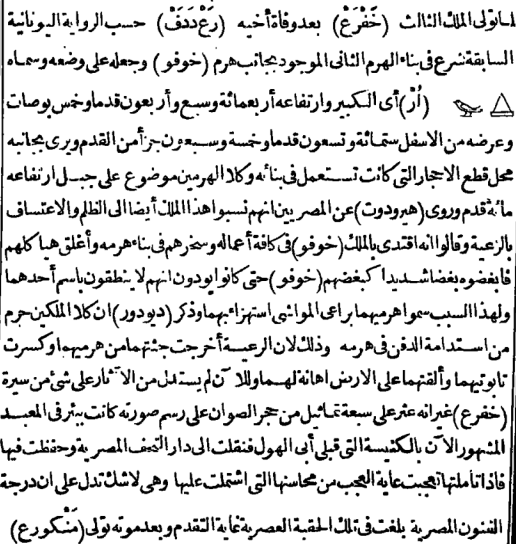 لماتولى الملك الثالث (خَفْرَعْ) بعدوفاة أخيه (رَعْ دَدَفْ) حسب الرواية اليونانية
السابقة شرع فى بناء الهرم الثانى الموجود بجانب هرم (خوفو) وجعله على وضعه وسماه
(أُرْ) أى الكبير وارتفاعه أربعمائة وسبع وأربعون قدما وخمس بوصات
وعرضه من الاسفل ستمائة وتسعون قدما وخمسة وسبعون جزأ من القدم ويرى بجانبه
محل قطع الاحجار التى كانت تستعمل فى بنائه وكلا الهرمين موضوع على جبل ارتفاعه
مائة قدم وروى (هيرودوت) عن المصريين انهم نسبوا هذا الملك أيضا الى الظلم والاعتساف
بالرعية وقالوا انه اقتدى بالملك (خوفو) فى كافة أعماله وسخرهم فى بناء هرمه وأغلق هياكلهم
فابغضوه بغضا شديدا كبغضهم (خوفو) حتى كانوا يودون انهم لا ينطقون باسم أحدهما
ولهذا السبب سموا هرميهما براعى المواشى استهزاء بهما وذكر (ديودور) ان كلا الملكين حرم
من استدامة الدفن فى هرمه وذلك لان الرعية أخرجت جثتهما من هرميهما وكسرت
تابوتيهما وألقتهما على الارض اهانة لهما وللآن لم يستدل من الآثار على شئ من سيرة
(خفرع) غير انه عثر على سبعة تماثيل من حجر الصوان على رسم صورته كانت ببئر فى المعبد
المشهور الآن بالكنيسة التى قبلى أبى الهول فنقلت الى دار التحف المصرية وحفظت فيها
فاذا تأملتها تعجبت غاية العجب من محاسنها التى اشتملت عليها وهى لاشك تدل على ان درجة
الفنون المصرية بلغت فى تلك الحقبة العصرية غاية التقدم وبعد موته تولى (مَنْكَورع)